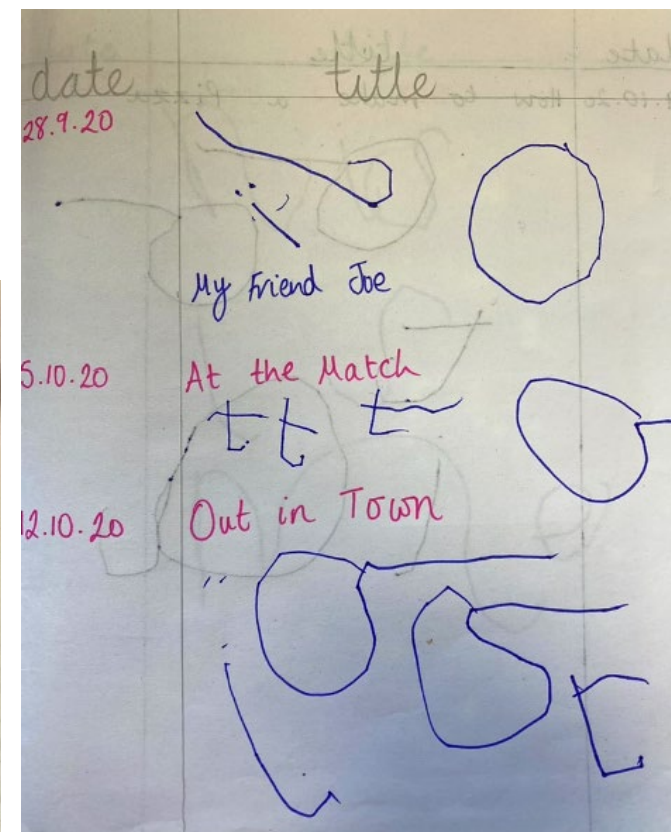 date title
28.9.20
My Friend Joe
5.10.20 At the Match
t t t
12.10.20 Out in Town